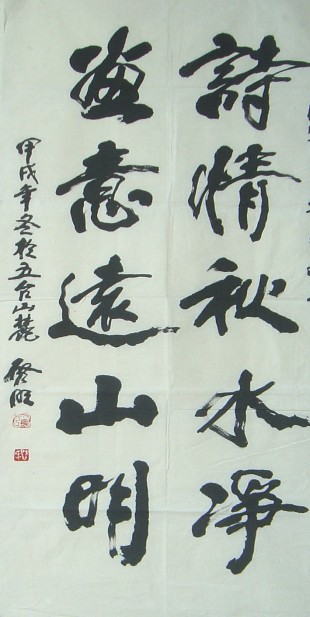 詩情秋水凈
畫意遠山明
甲戌年冬於五台山麓